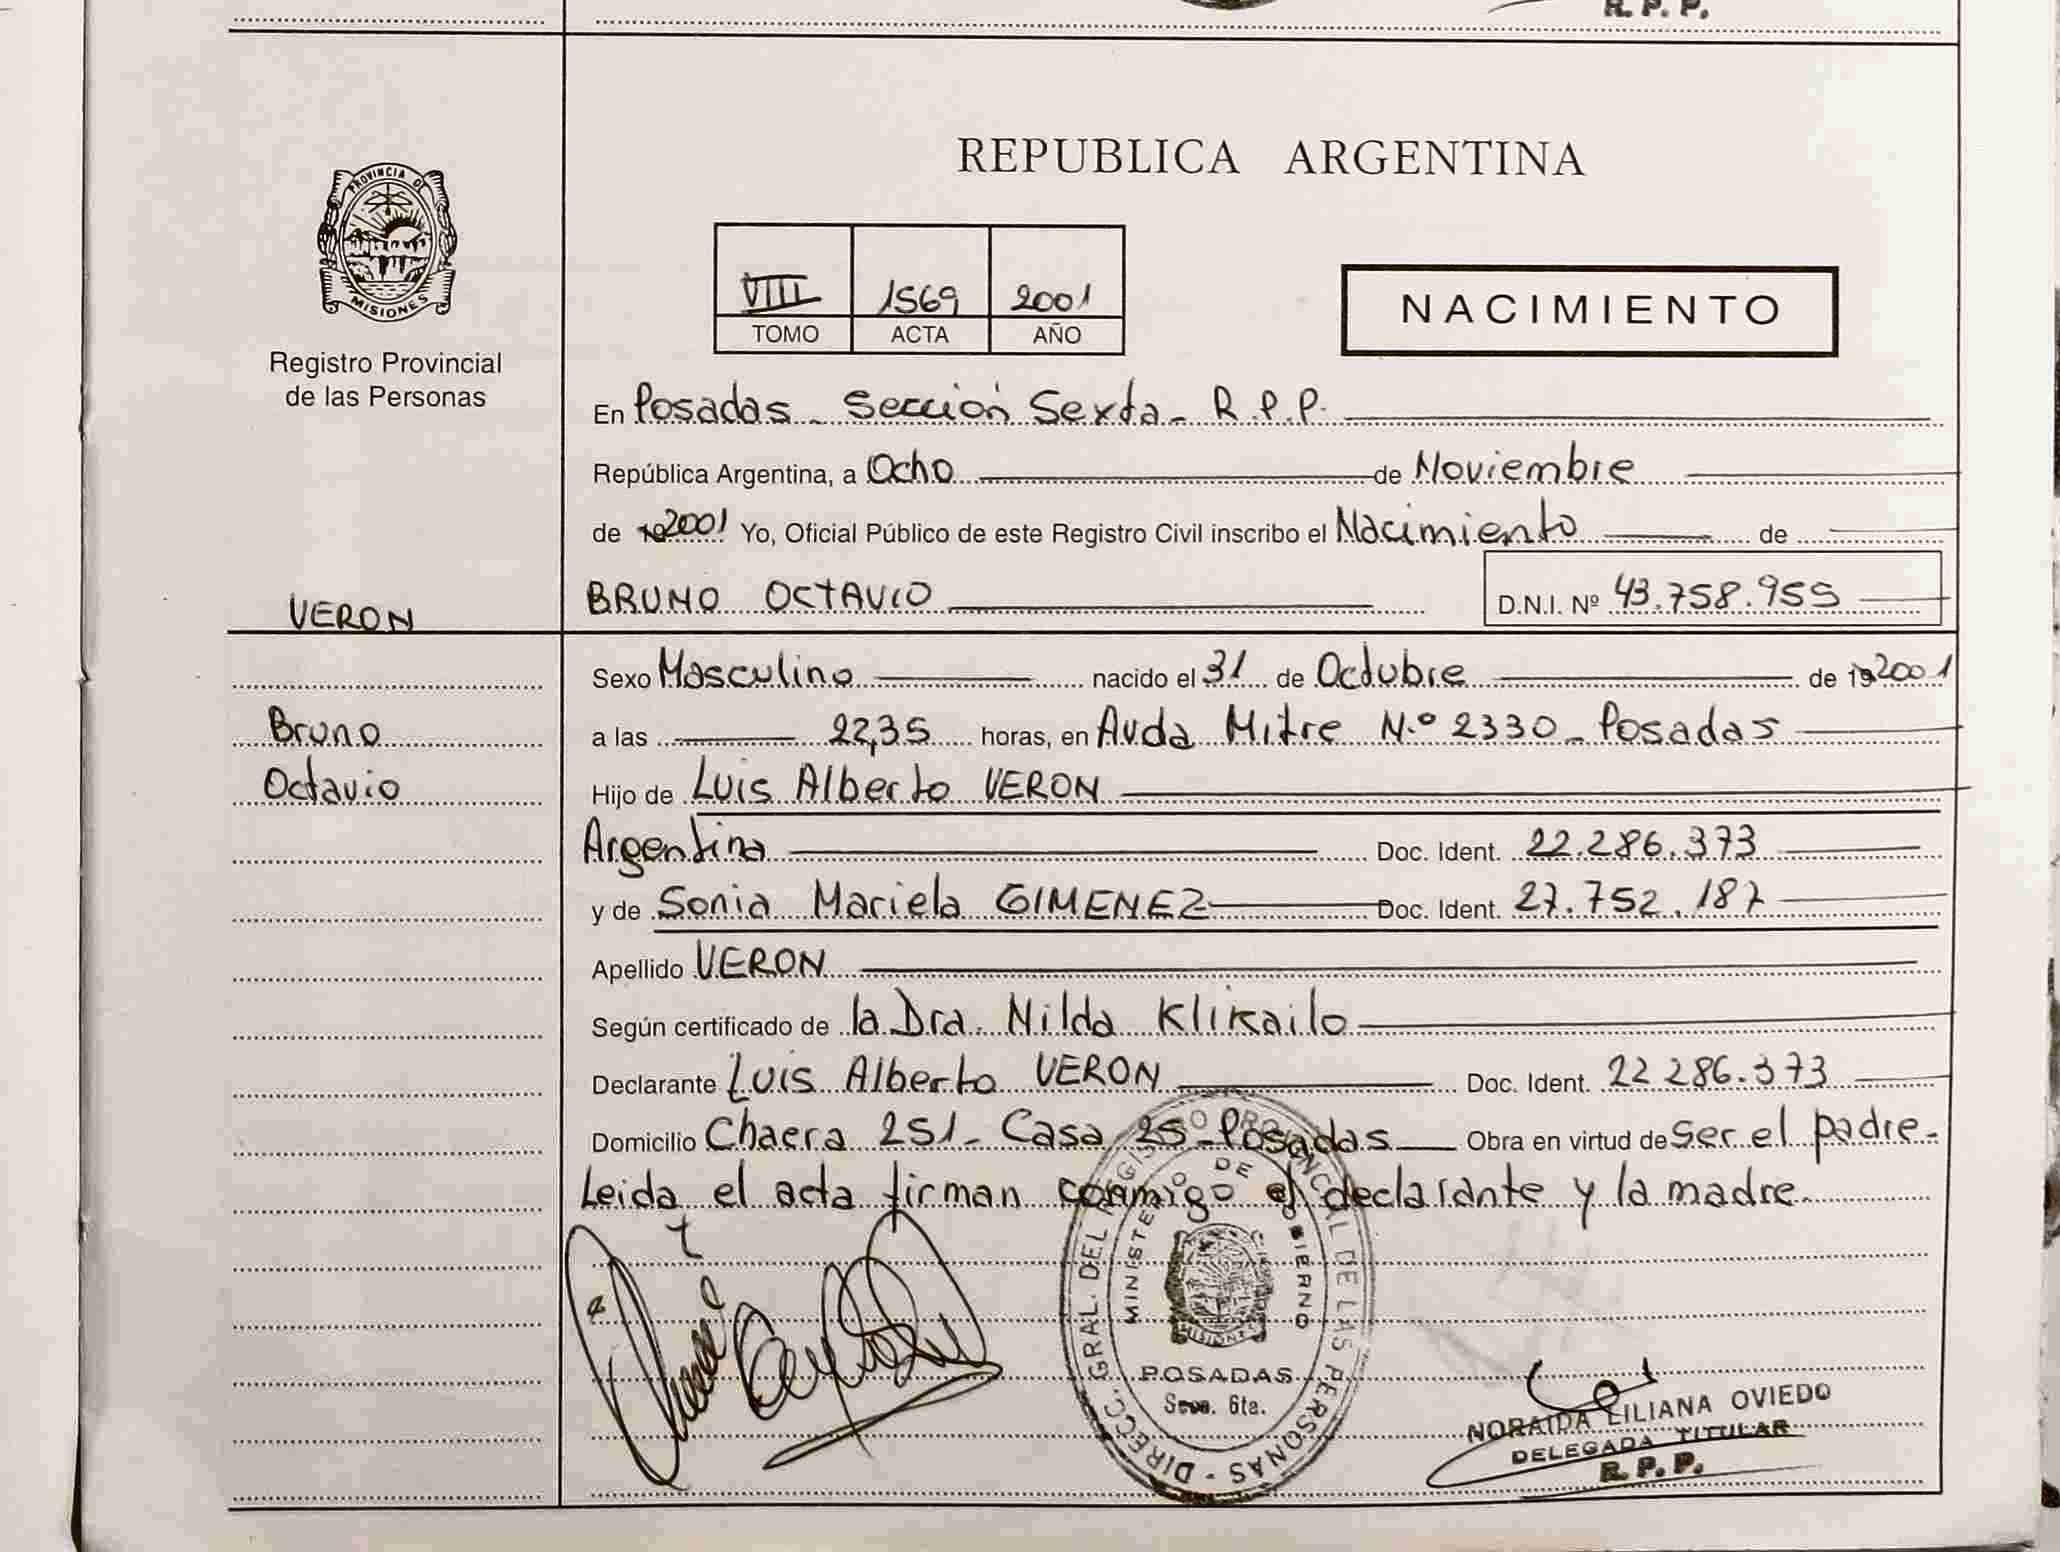 R. P. P.
REPUBLICA ARGENTINA
PROVINCIA DE
MISIONES
Registro Provincial
de las Personas
VIII 1569 2001
TOMO ACTA AÑO
NACIMIENTO
En Posadas - Sección Sexta - R.P.P.
República Argentina, a Ocho de Noviembre
de 2001 Yo, Oficial Público de este Registro Civil inscribo el Nacimiento de
VERON
BRUNO OCTAVIO D.N.I. Nº 43.758.955
Sexo Masculino nacido el 31 de Octubre de 2001
Bruno
a las 22,35 horas, en Avda Mitre N.º 2330 - Posadas
Octavio
Hijo de Luis Alberto VERON
Argentina Doc. Ident. 22.286.373
y de Sonia Mariela GIMENEZ Doc. Ident. 27.752.187
Apellido VERON
Según certificado de la Dra. Nilda Klikailo
Declarante Luis Alberto VERON Doc. Ident. 22 286.373
Domicilio Chaera 251 - Casa 25 - Posadas Obra en virtud de ser el padre.-
Leida el acta firman conmigo el declarante y la madre.
DIRECC. GRAL. DEL REGISTRO PROVINCIAL DE LAS PERSONAS
MINISTERIO DE GOBIERNO
MISIONES
POSADAS
Secc. 6ta.
NORAIDA LILIANA OVIEDO
DELEGADA TITULAR
R. P. P.